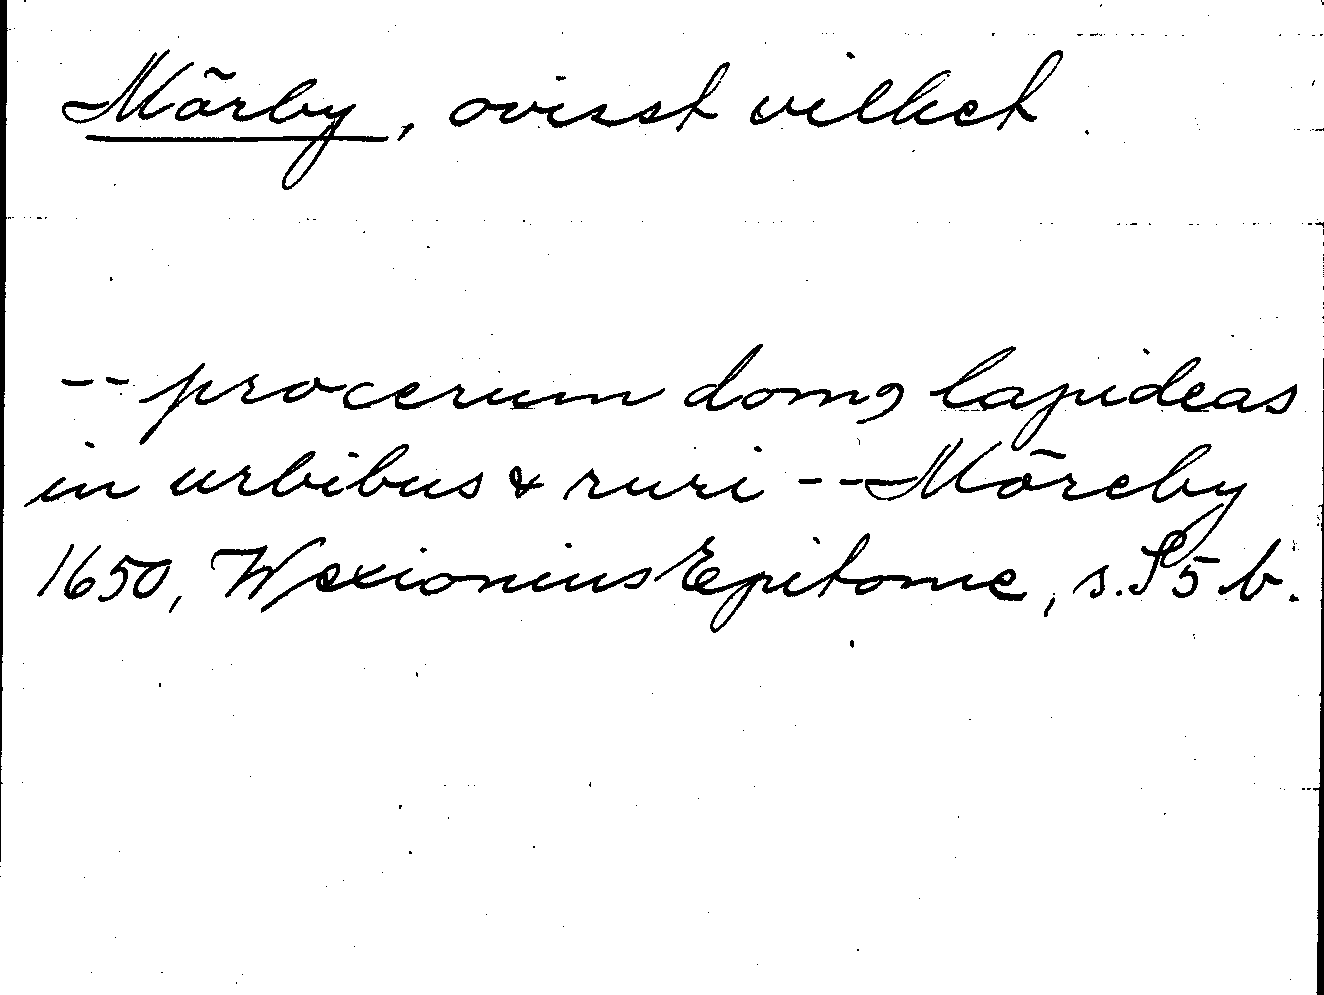 Mörby, ovisst vilket.
-- procerum domꝯ lapideas
in urbibus & ruri -- Möreby
1650, Wexionius Epitome, s. S5 b.